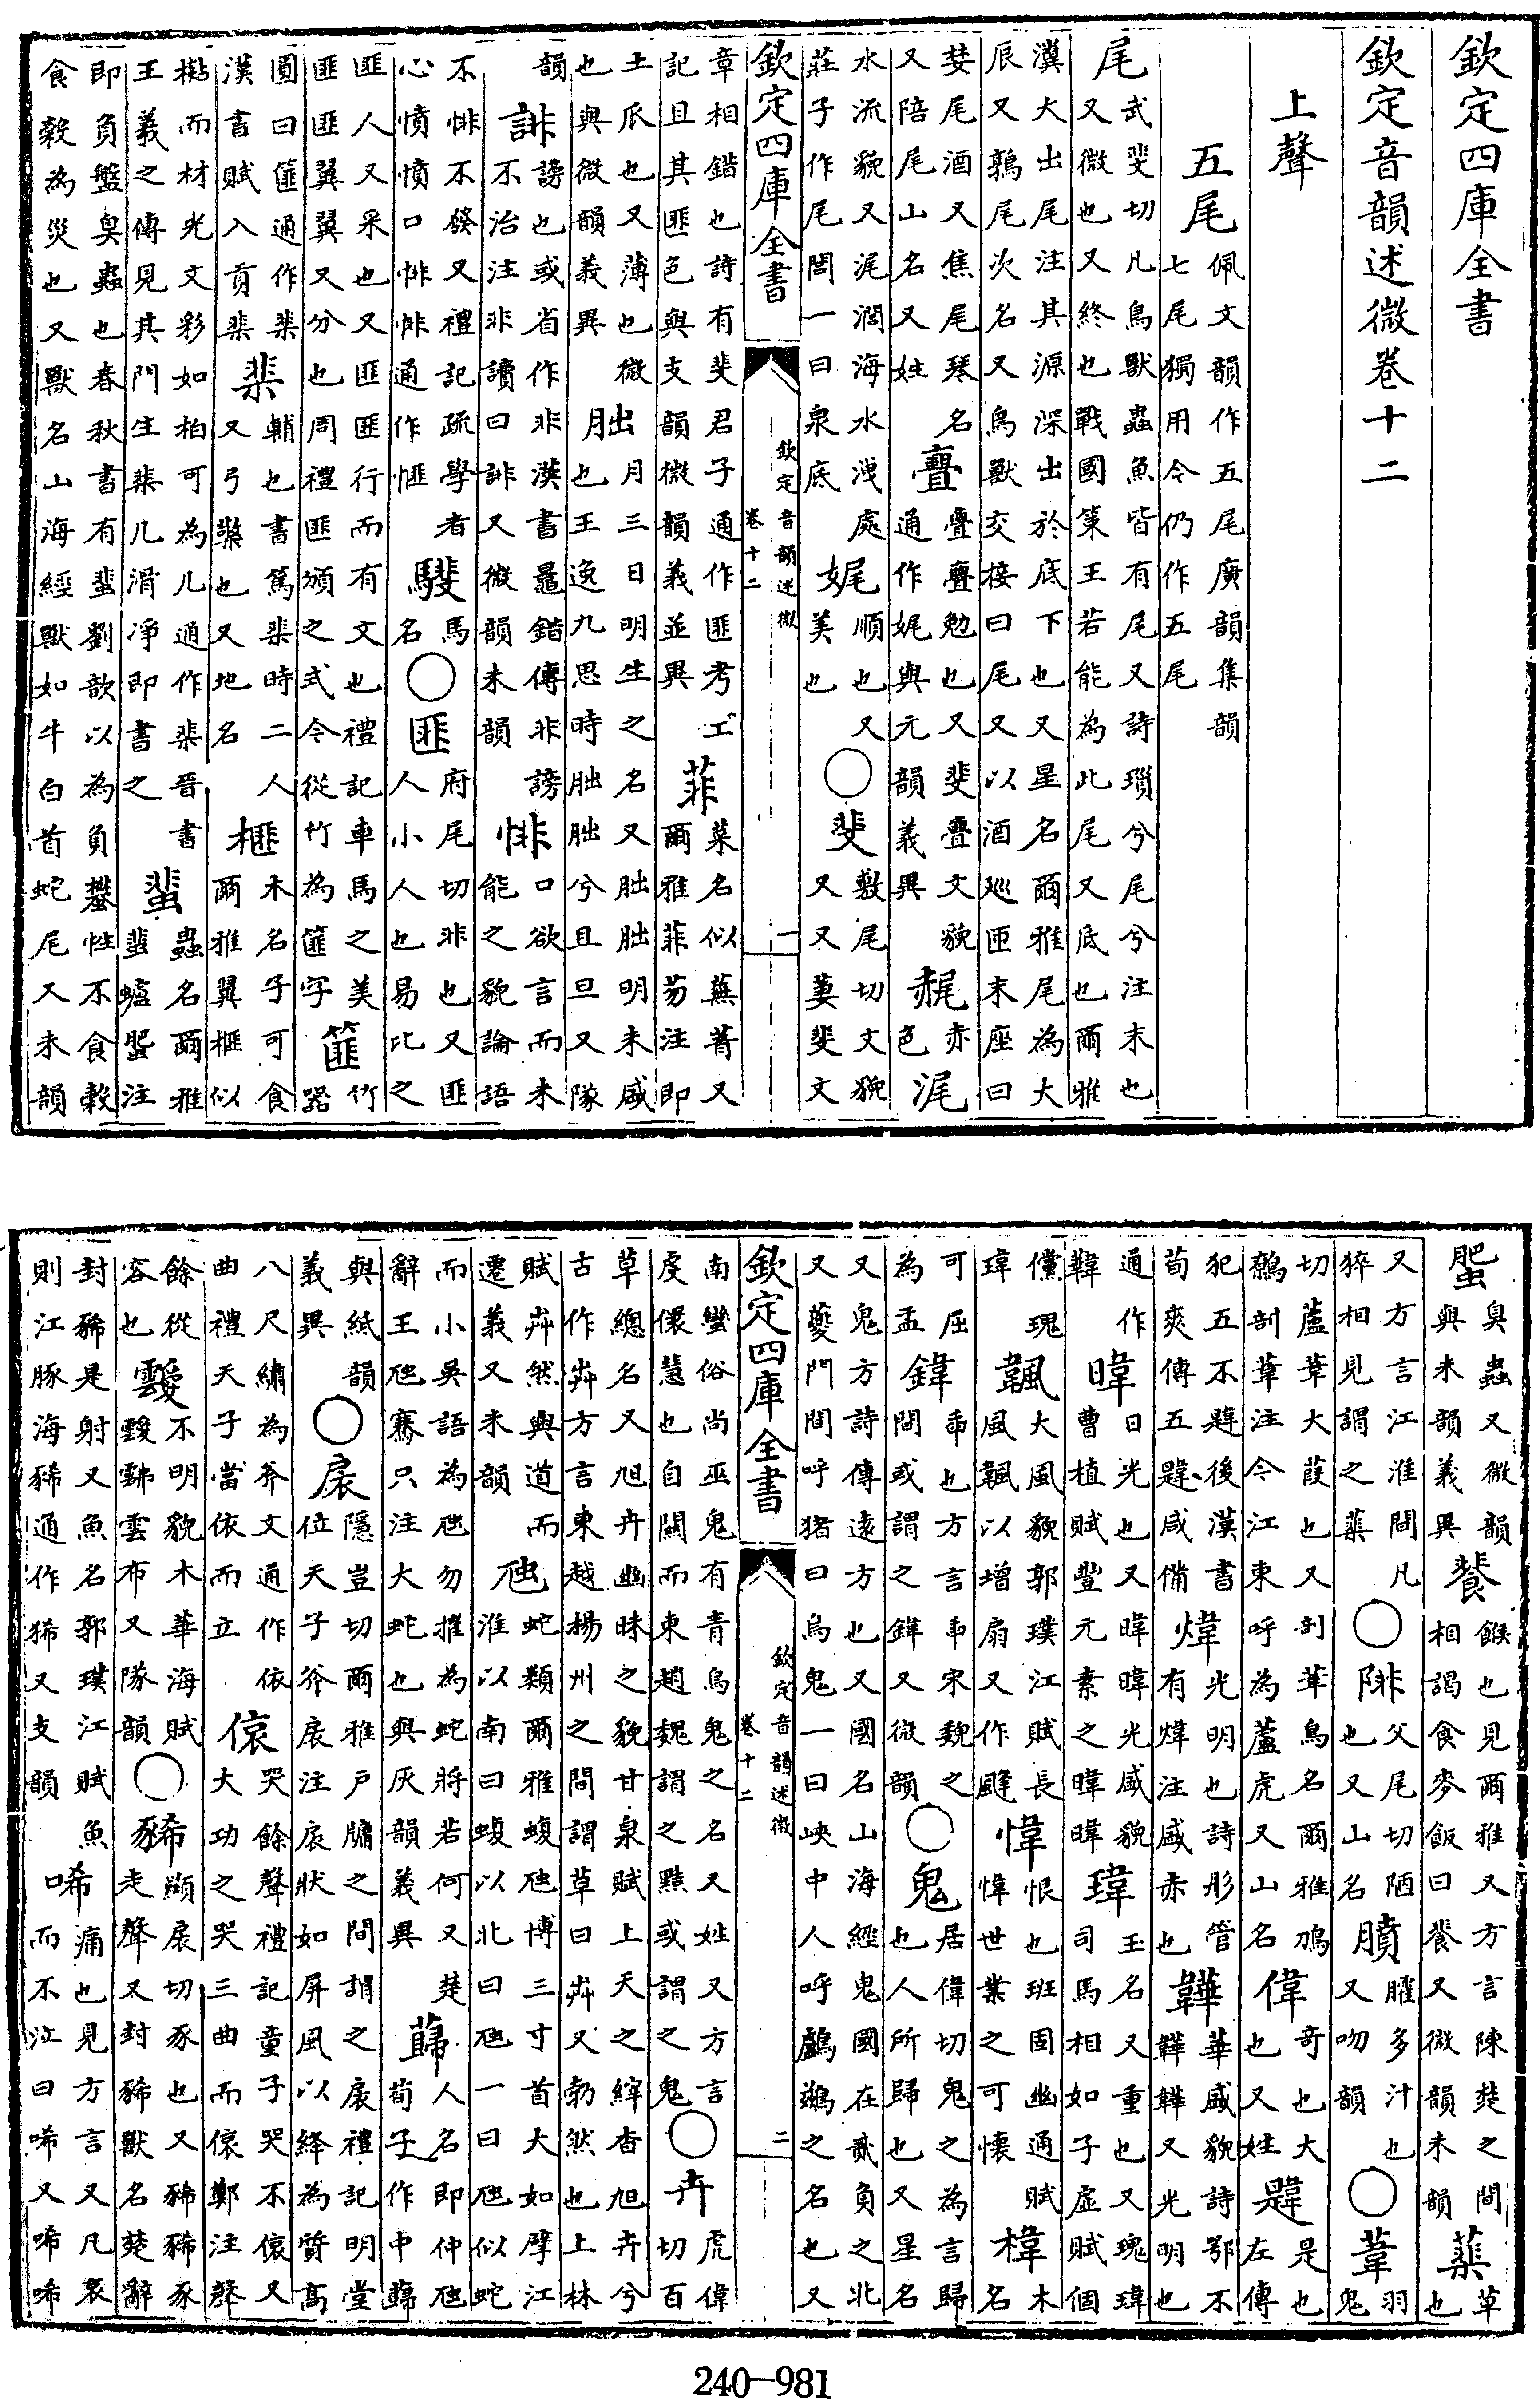 欽定四庫全書
欽定音韻述微卷十二
上聲
五尾佩文韻作五尾廣韻集韻
七尾獨用今仍作五尾
尾武斐切凡鳥獸蟲魚皆有尾又詩瑣兮尾兮注末也
又微也又終也戰國策王若能為此尾又底也爾雅
瀵大出尾注其源深出於底下也又星名爾雅尾為大
辰又鶉尾次名又鳥獸交接曰尾又以酒巡匝末座曰
婪尾酒又焦尾琴名
又陪尾山名又姓
亹亹亹勉也又斐亹文貌
通作娓與元韻義異
赤
色
浘
水流貌又浘潤海水洩處
莊子作尾閭一曰泉底
娓順也又
美也
○斐敷尾切文貌
又又萋斐文
欽定四庫全書
欽定音韻述微
卷十二
一
章相錯也詩有斐君子通作匪考工
記且其匪色與支韻微韻義並異
菲菜名似蕪菁又
爾雅菲芴注即
土瓜也又薄也微
也與微韻義異
朏月三日明生之名又朏朏明未盛
也王逸九思時朏朏兮且旦又隊
韻
誹謗也或省作非漢書鼂錯傳非謗
不治注非讀曰誹又微韻未韻
悱口欲言而未
能之貌論語
不悱不發又禮記疏學者
心憤憤口悱悱通作悱
馬
名
○匪府尾切非也又匪
人小人也易比之
匪人又采也又匪匪行而有文也禮記車馬之美
匪匪翼翼又分也周禮匪頒之式今從竹為篚字
篚竹
器
圓曰篚通作棐
漢書賦入貢棐
棐輔也書篤棐時二人
又弓檠也又地名
榧木名子可食
爾雅翼榧似
㮨而材光文彩如柏可為几通作棐晉書
王羲之傳見其門生棐几滑淨即書之
蜚蟲名爾雅
蜚蠦蜰注
即負盤臭蟲也春秋書有蜚劉歆以為負蠜性不食穀
食穀為災也又獸名山海經獸如牛白首蛇尾又未韻
蜰臭蟲又微韻
與未韻義異
餥餱也見爾雅又方言陳楚之間
相謁食麥飯曰餥又微韻未韻
蕜草
也
又方言江淮間凡
猝相見謂之蕜
○陫父尾切陋
也又山名
膹臛多汁也
又吻韻
○葦羽
鬼
切蘆葦大葭也又剖葦鳥名爾雅鳭
鷯剖葦注今江東呼為蘆虎又山名
偉奇也大
也又姓
韙是也
左傳
犯五不韙後漢書
荀爽傳五韙咸備
煒光明也詩彤管
有煒注盛赤也
韡華盛貌詩鄂不
韡韡又光明也
通作
韡
暐日光也又暐暐光盛貌
曹植賦豐元素之暐暐
瑋玉名又重也又瑰瑋
司馬相如子虛賦個
儻瑰
瑋
颹大風貌郭璞江賦長
風颹以增扇又作
愇恨也班固幽通賦
愇世業之可懷
椲木
名
可屈
為盂
鍏臿也方言臿宋魏之
間或謂之鍏又微韻
○鬼居偉切鬼之為言歸
也人所歸也又星名
又鬼方詩傳遠方也又國名山海經鬼國在貳負之北
又夔門間呼猪曰烏鬼一曰峽中人呼鸕鷀之名也又
南蠻俗尚巫鬼有青烏鬼之名又姓又方言
虔儇慧也自關而東趙魏謂之黠或謂之鬼
○卉虎偉
切百
欽定四庫全書
欽定音韻述微
卷十二
二
草總名又旭卉幽昧之貌甘泉賦上天之縡杳旭卉兮
古作芔方言東越揚州之間謂草曰芔又勃然也上林
賦芔然興道而
遷義又未韻
虺蛇類爾雅蝮虺博三寸首大如擘江
淮以南曰蝮以北曰虺一曰虺似蛇
而小吳語為虺勿摧為蛇將若何又楚
辭王虺騫只注大蛇也與灰韻義異
蘬人名即仲虺
荀子作中蘬
與紙韻
義異
○扆隱豈切爾雅戶牖之間謂之扆禮記明堂
位天子斧扆注扆狀如屏風以絳為質高
八尺繡為斧文通作依
曲禮天子當依而立
偯哭餘聲禮記童子哭不偯又
大功之哭三曲而偯鄭注聲
餘從
容也
靉不明貌木華海賦
靉霼雲布又隊韻
○豨顯扆切豕也又豨豨豕
走聲又封豨獸名楚辭
封豨是射又魚名郭璞江賦魚
則江豚海豨通作狶又支韻
唏痛也見方言又凡哀
而不泣曰唏又唏唏
240-981